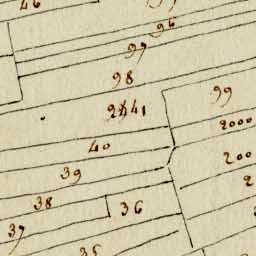 46
96
97
98
99
2441
2000
40
200
39
38
36
37
35